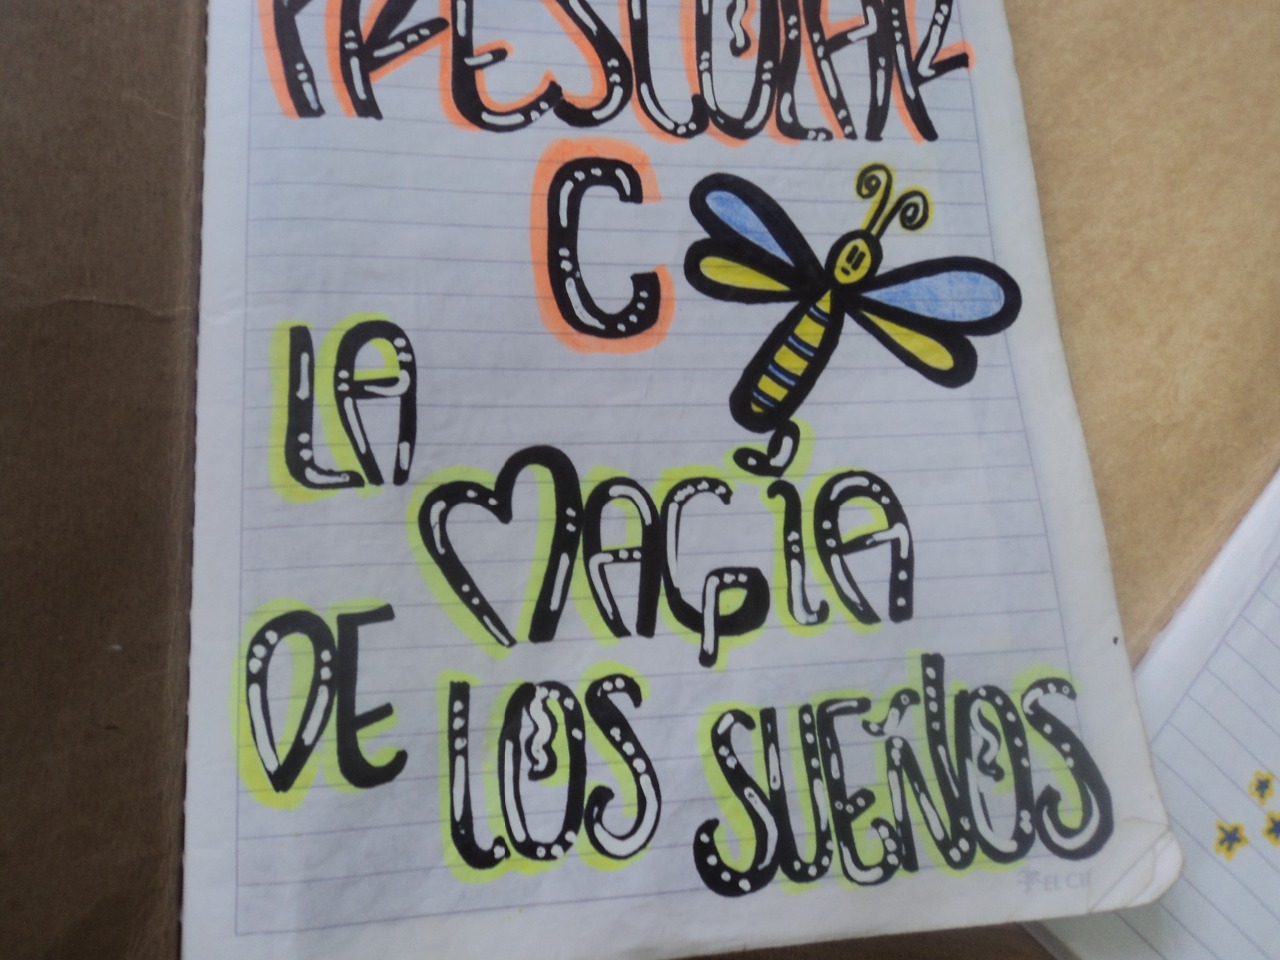 PRESCOLAR
C
LA
MAGIA
DE LOS SUEÑOS